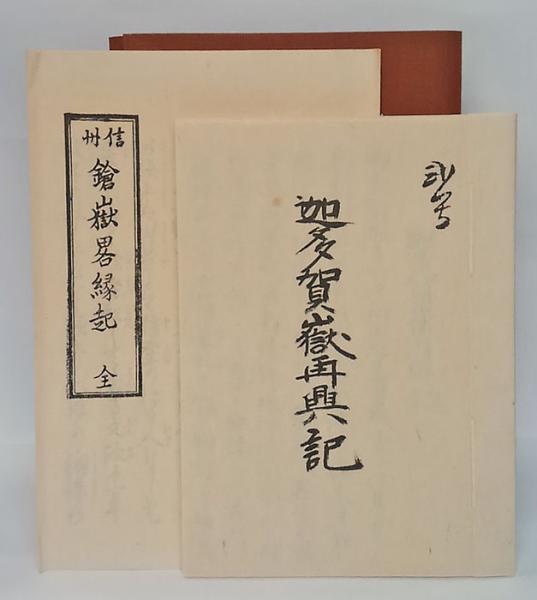 迦多賀嶽再興記
信州
鎗嶽畧縁起 全